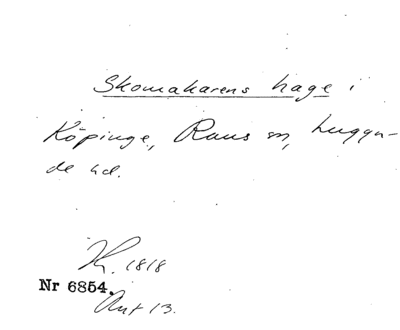 Skomakarens hage i
Köpinge, Raus sn, Luggu-
de hd.
K. 1818
Nr 6854.
Ant 13.